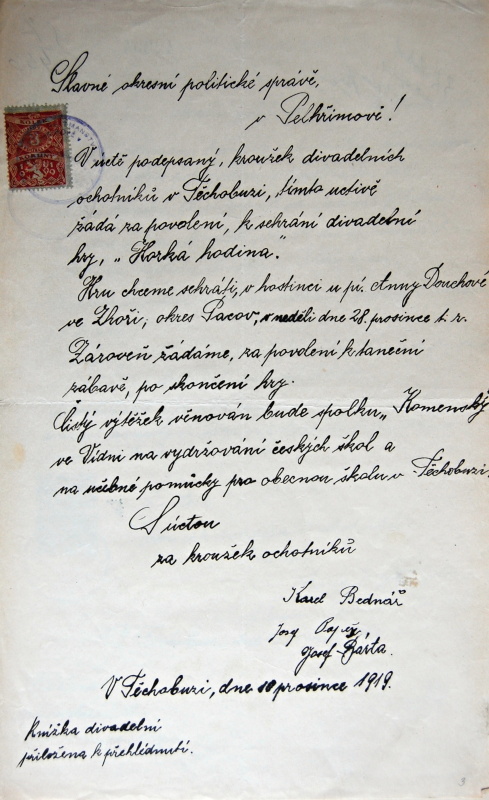 Slavné okresní politické správě,
v Pelhřimově!
V uctě podepsaný, kroužek divadelních
ochotníků v Těchobuzi, tímto uctivě
žádá za povolení, k sehrání divadelní
hry, „Horká hodina".
Hru chceme sehráti, v hostinci u pí. Anny Douchové
ve Zhoři, okres Pacov, v neděli dne 28. prosince t. r.
Zároveň žádáme, za povolení k taneční
zábavě, po skončení hry.
Čistý výtěžek věnován bude spolku „Komenský
ve Vídni na vydržování českých škol a
na učebné pomůcky pro obecnou školu v Těchobuzi.
S úctou
za kroužek ochotníků
Karel Bednář
Josef
Josef Bárta.
V Těchobuzi, dne 10 prosince 1919.
Knížka divadelní
přiložena k přehlédnutí.